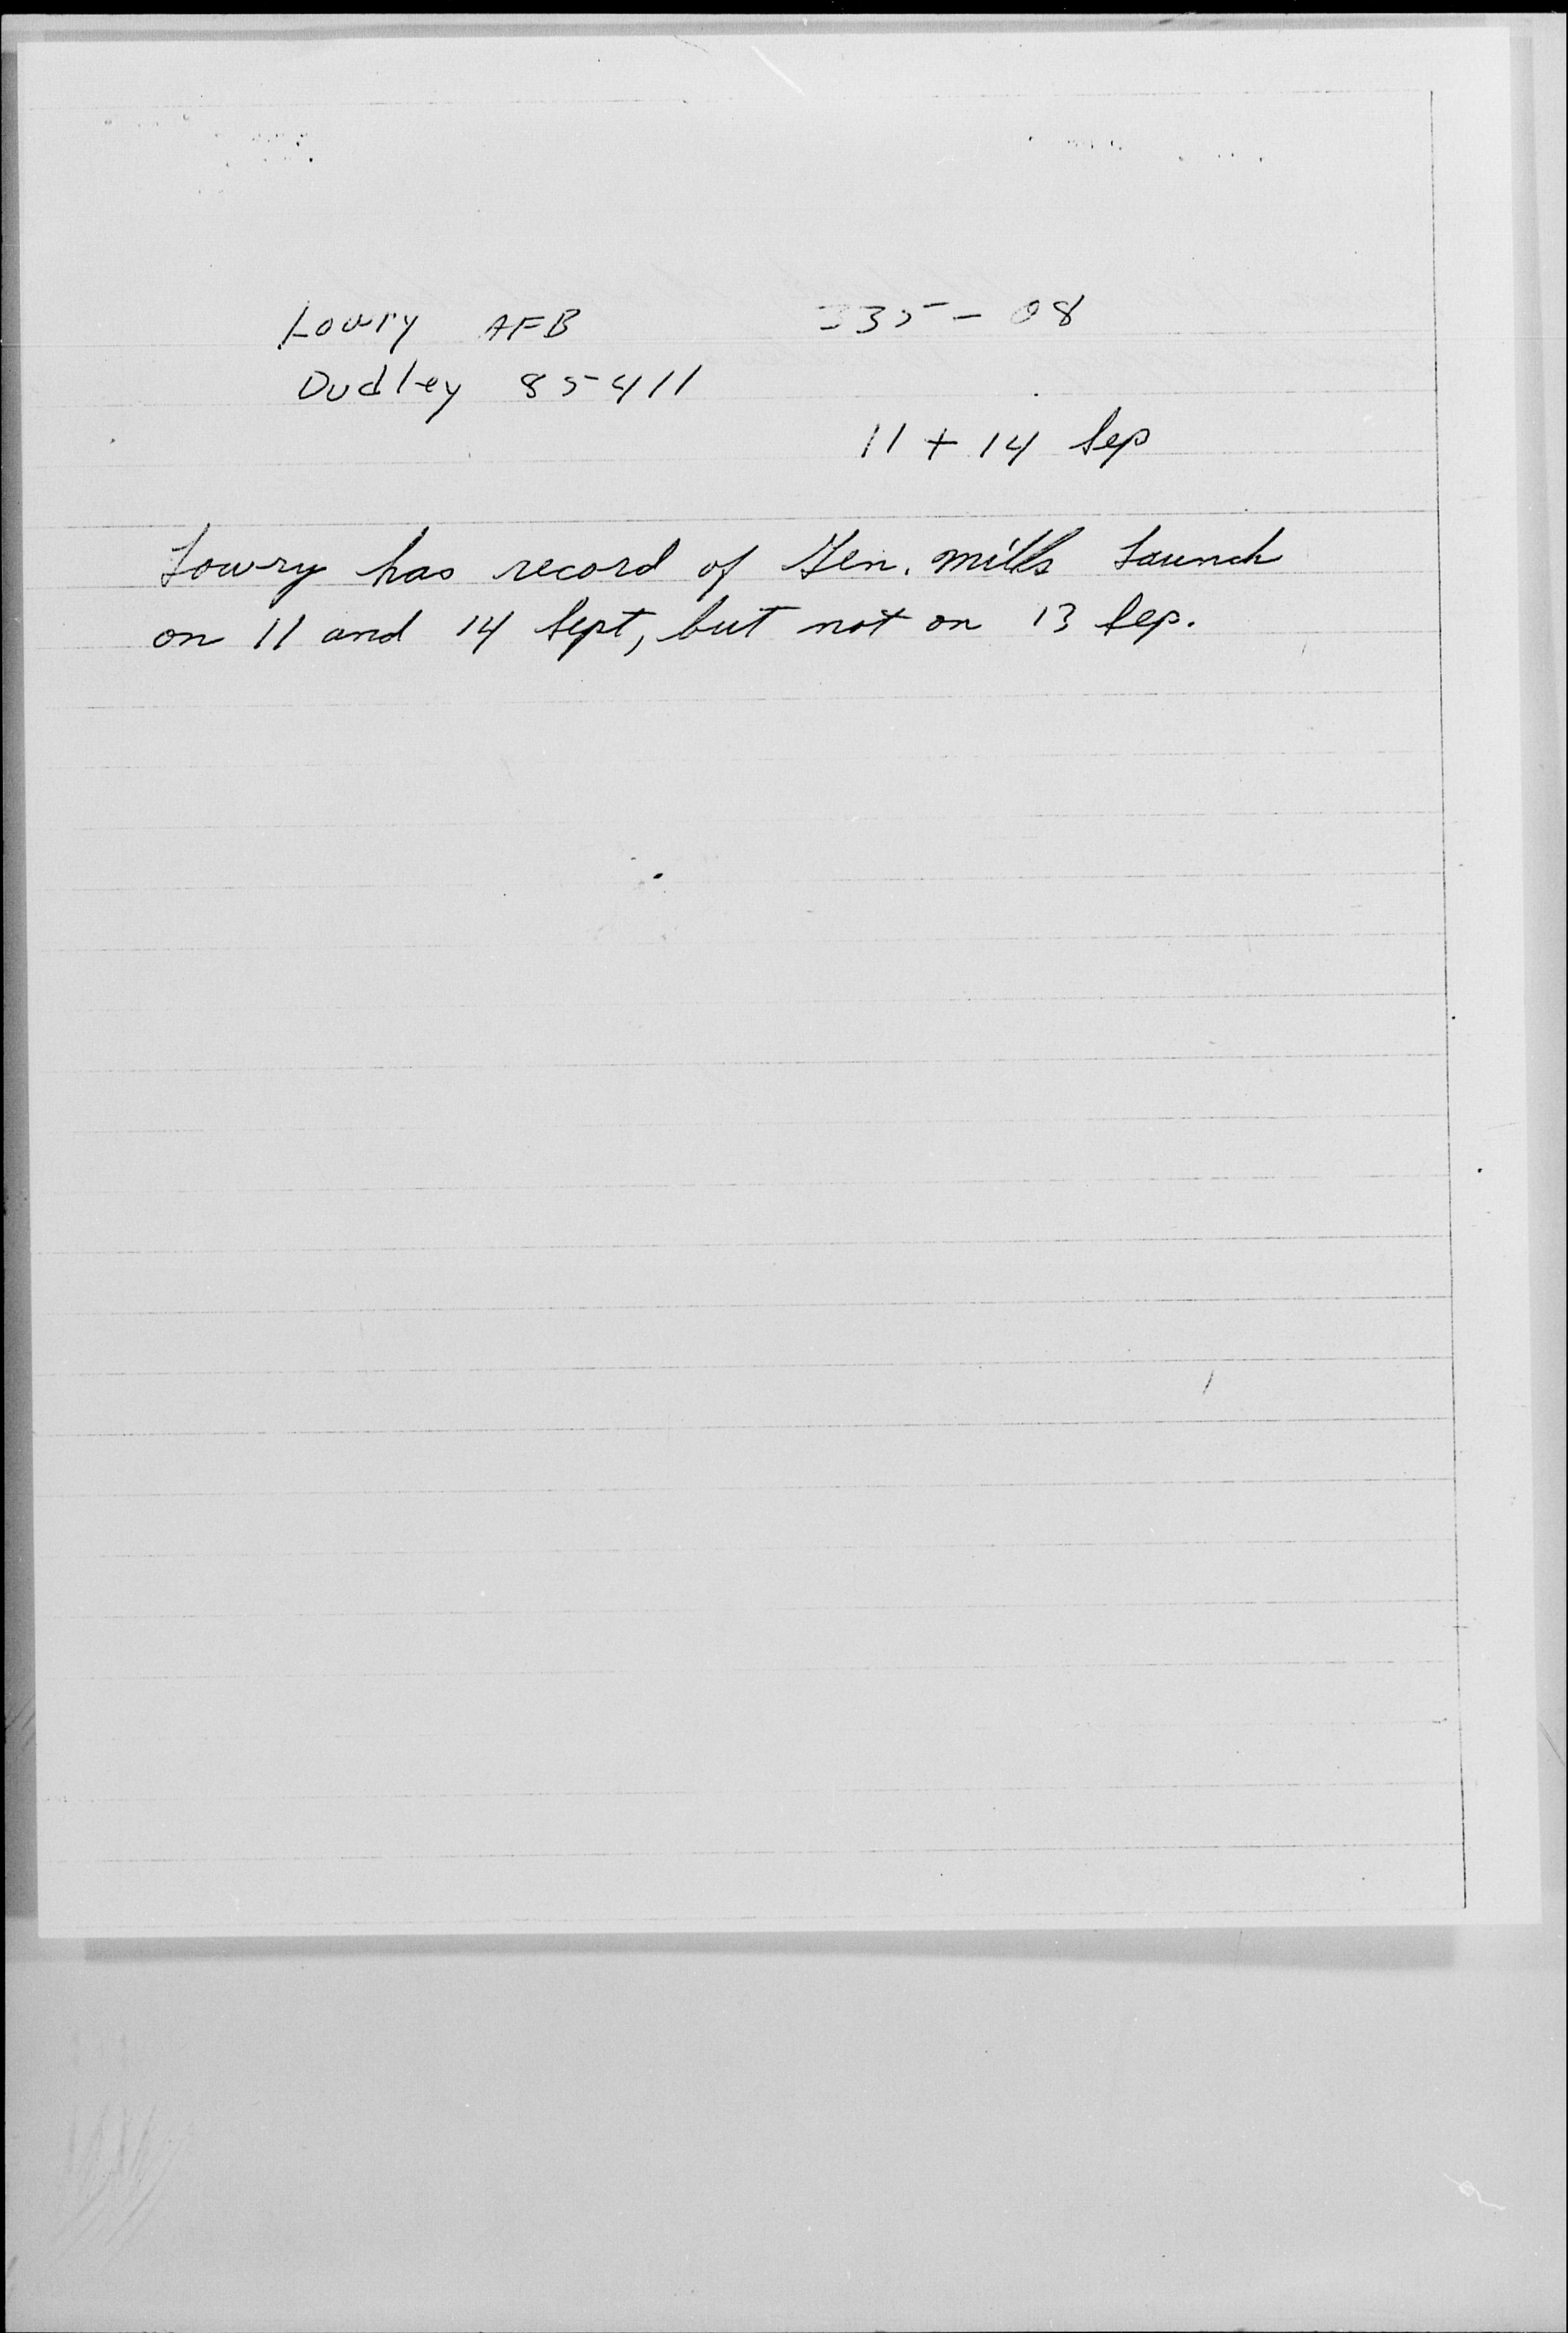 Lowry AFB 335-08
Dudley 85411
11 + 14 Sep
Lowry has record of Gen. Mills Launch
on 11 and 14 Sept, but not on 13 Sep.